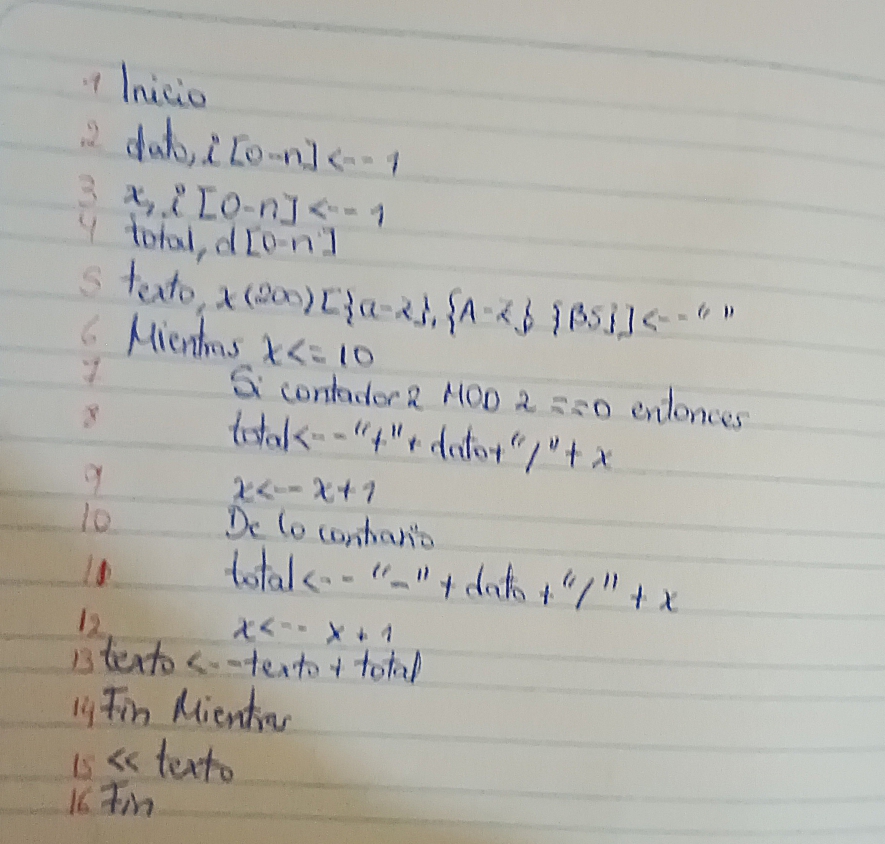 1 Inicio
2 dato, i [0-n] <-- 1
3 x, i [0-n] <-- 1
4 total, d[0-n]
5 texto, x(200) [{a-z}, {A-Z} {BS}] <-- " "
6 Mientras x <= 10
7 Si contador2 MOD 2 ==0 entonces
8 total <-- "+" + dato + "/" + x
9 x <-- x + 1
10 De lo contrario
11 total <-- "-" + dato + "/" + x
12 x <-- x + 1
13 texto <-- texto + total
14 Fin Mientras
15 << texto
16 Fin